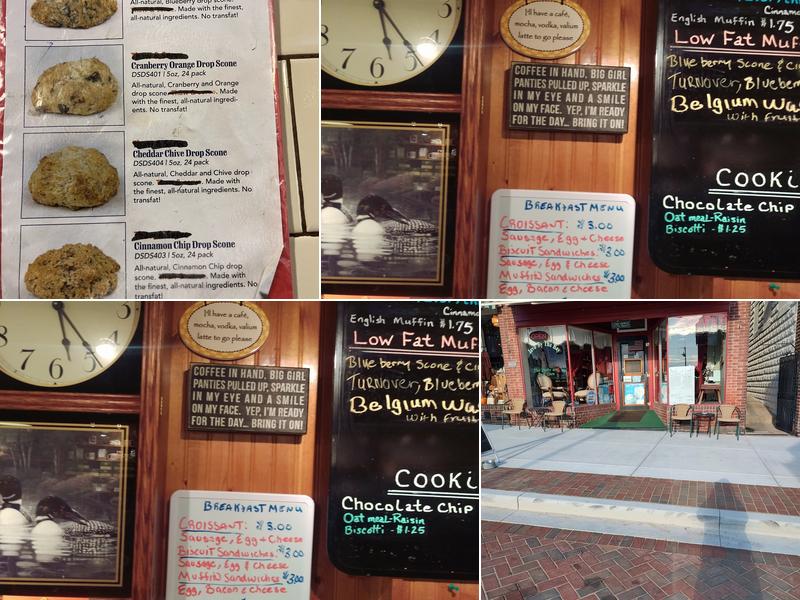 All-natural, Blueberry drop scone.
Made with the finest,
all-natural ingredients.
No transfat!
Cranberry Orange Drop Scone
DSDS401 | 5oz, 24 pack
All-natural, Cranberry and Orange
drop scone. Made
with the finest, all-natural ingredi-
ents. No transfat!
Cheddar Chive Drop Scone
DSDS404 | 5oz, 24 pack
All-natural, Cheddar and Chive drop
scone. Made with
the finest, all-natural ingredients. No
transfat!
Cinnamon Chip Drop Scone
DSDS403 | 5oz, 24 pack
All-natural, Cinnamon Chip drop
scone. Made with
the finest, all-natural ingredients. No
transfat!
3
4
5
6
7
8
HI have a café,
mocha, vodka, valium
latte to go please
COFFEE IN HAND, BIG GIRL
PANTIES PULLED UP, SPARKLE
IN MY EYE AND A SMILE
ON MY FACE. YEP, I'M READY
FOR THE DAY... BRING IT ON!
BREAKFAST MENU
CROISSANT: $3.00
Sausage, Egg + Cheese
Biscuit Sandwiches: $3.00
Sausage, Egg & Cheese
Muffin Sandwiches $3.00
Egg, Bacon & Cheese
Cinnamo
English Muffin $1.75
Low Fat Muf
Blueberry Scone & Ci
Turnover, Blueber
Belgium Wa
with Fruit
Cooki
Chocolate Chip
Oatmeal-Raisin
Biscotti - $1.25
3
4
5
6
7
8
HI have a café,
mocha, vodka, valium
latte to go please
COFFEE IN HAND, BIG GIRL
PANTIES PULLED UP, SPARKLE
IN MY EYE AND A SMILE
ON MY FACE. YEP, I'M READY
FOR THE DAY... BRING IT ON!
BREAKFAST MENU
CROISSANT: $3.00
Sausage, Egg + Cheese
Biscuit Sandwiches: $3.00
Sausage, Egg & Cheese
Muffin Sandwiches $3.00
Egg, Bacon & Cheese
Cinnamo
English Muffin $1.75
Low Fat Muf
Blueberry Scone & Ci
Turnover, Blueber
Belgium Wa
with Fruit
Cooki
Chocolate Chip
Oatmeal-Raisin
Biscotti - $1.25
OPEN